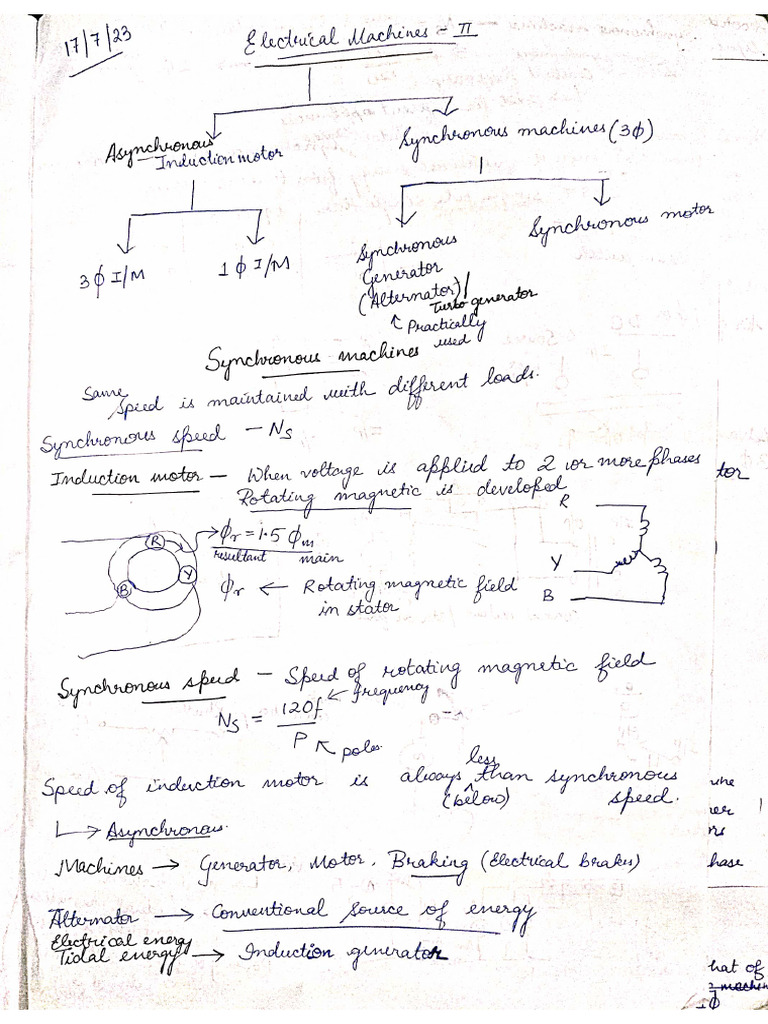 17/7/23
Electrical Machines - II
Asynchronous
Induction motor
Synchronous machines (3ϕ)
3ϕ I/M
1ϕ I/M
Synchronous
Generator
(Alternator)/
Turbo generator
↖ Practically
used
Synchronous motor
Synchronous machines
Same
Speed is maintained with different loads.
Synchronous speed - Ns
Induction motor - When voltage is applied to 2 or more phases
Rotating magnetic is developed
tor
R
Y
B
ϕr = 1.5 ϕm
resultant main
ϕr ← Rotating magnetic field
in stator
R
Y
B
Synchronous speed - Speed of rotating magnetic field
Ns = 120f ← frequency
P ↖ poles
less
Speed of induction motor is always ^ than synchronous
(below) speed.
↳ Asynchronous.
Machines → Generator, Motor, Braking (Electrical brakes)
hase
Alternator → Conventional source of energy
Electrical energy
Tidal energy → Induction generator
hat of